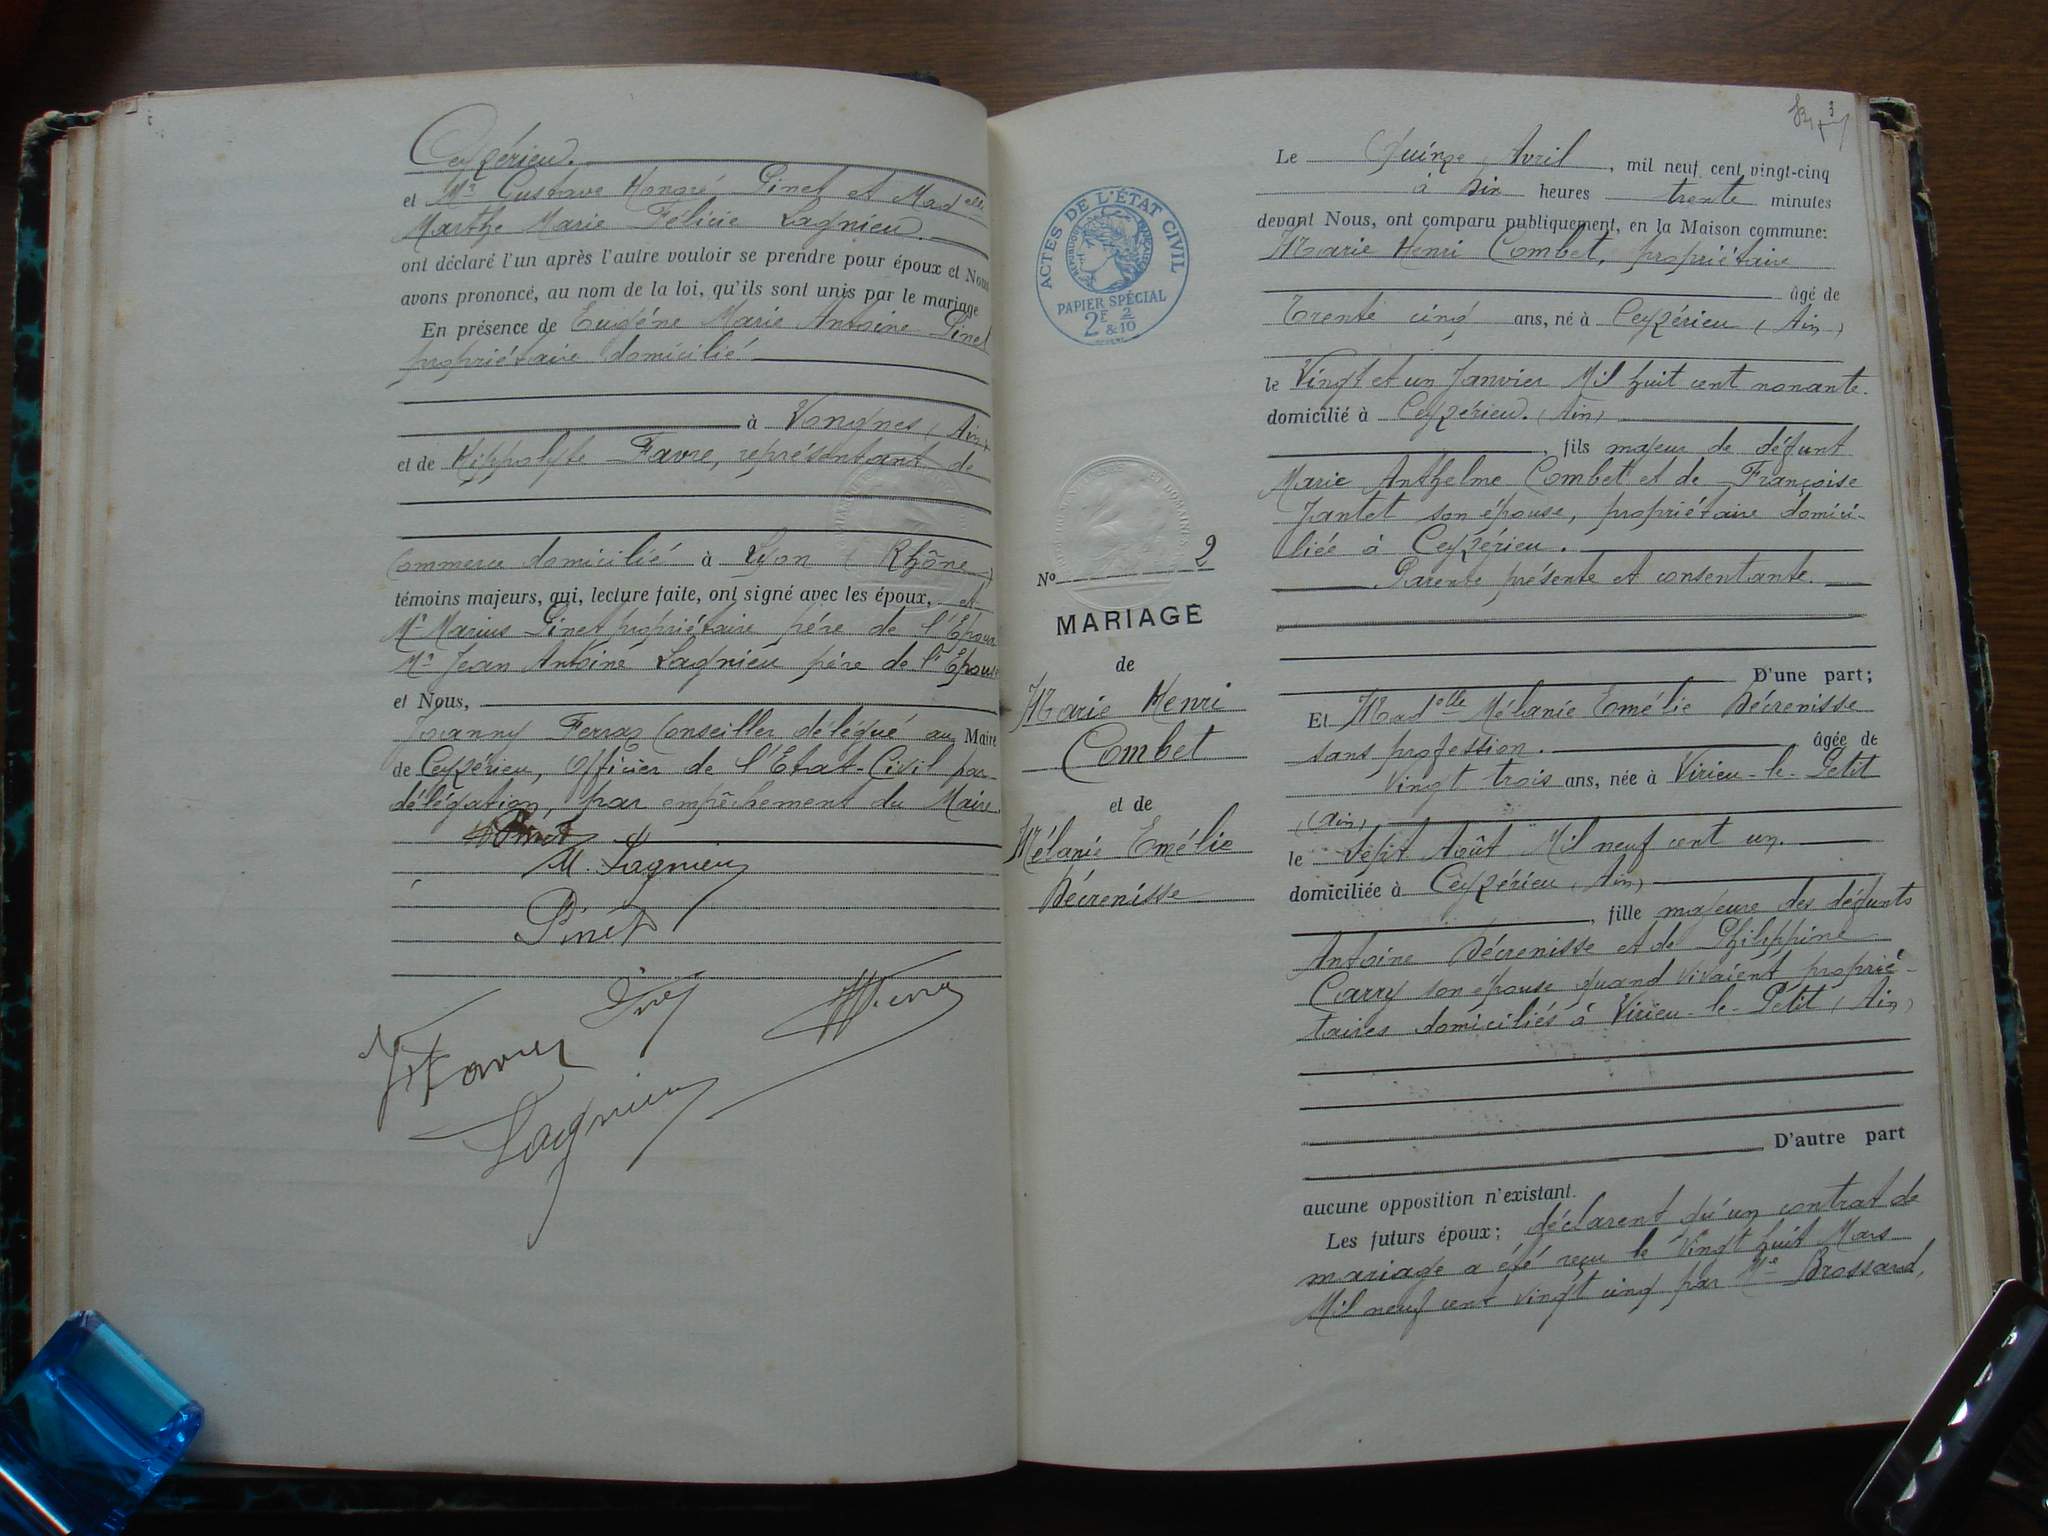 Ceyzérieu.
et Mr Gustave Honoré Pinet et Madelle
Marthe Marie Félicie Lagnieu.
ont déclaré l'un après l'autre vouloir se prendre pour époux et Nous
avons prononcé, au nom de la loi, qu'ils sont unis par le mariage
En présence de Eugène Marie Antoine Pinet
propriétaire domicilié
à Vongnes (Ain)
et de Hippolyte Favre, représentant de
commerce domicilié à Lyon (Rhône)
témoins majeurs, qui, lecture faite, ont signé avec les époux, et
Mr Marius Pinet propriétaire père de l'Époux
Mr Jean Antoine Lagnieu père de l'Épouse
et Nous,
Joanny Ferraz Conseiller délégué au Maire
de Ceyzérieu, Officier de l'Etat-Civil par
délégation, par empêchement du Maire.
Pinet
M. Lagnieu
Pinet
Lagnieu
3
Le Quinze Avril, mil neuf cent vingt-cinq
à dix heures trente minutes
devant Nous, ont comparu publiquement, en la Maison commune:
Marie Henri Combet, propriétaire
âgé de
Trente cinq ans, né à Ceyzérieu (Ain)
le Vingt et un Janvier Mil huit cent nonante.
domicilié à Ceyzérieu. (Ain)
, fils majeur de défunt
Marie Anthelme Combet et de Françoise
Jantet son épouse, propriétaire domici-
liée à Ceyzérieu.
Parente présente et consentante.
D'une part;
Et Madelle Mélanie Emélie Décrenisse
sans profession. âgée de
Vingt trois ans, née à Virieu-le-Petit
(Ain)
le Sept Août Mil neuf cent un.
domiciliée à Ceyzérieu (Ain)
, fille majeure des défunts
Antoine Décrenisse et de Philippine
Carry son épouse quand vivaient proprié-
taires domiciliés à Virieu-le-Petit (Ain)
D'autre part
aucune opposition n'existant.
Les futurs époux; déclarent qu'un contrat de
mariage a été reçu le Vingt huit Mars
Mil neuf cent vingt cinq par Me Brossard,
ACTES DE L'ÉTAT CIVIL
RÉPUBLIQUE FRANÇAISE
PAPIER SPÉCIAL
2F 2
&10
No 2
MARIAGE
de
Marie Henri
Combet
et de
Mélanie Emélie
Décrenisse